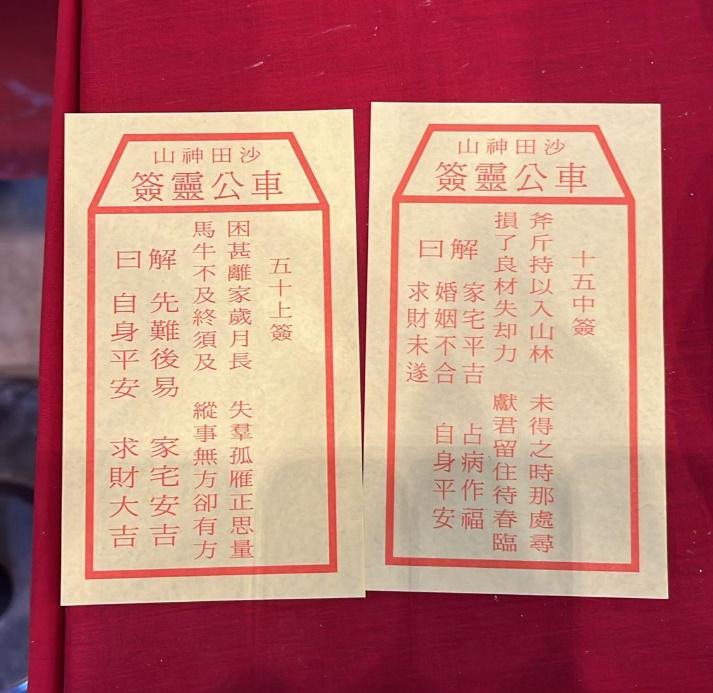 沙田神山
車公靈簽
五十上簽
困甚離家歲月長 失羣孤雁正思量
馬牛不及終須及 縱事無方卻有方
解 先難後易 家宅安吉
曰 自身平安 求財大吉
沙田神山
車公靈簽
十五中簽
斧斤持以入山林 未得之時那處尋
損了良材失却力 獻君留住待春臨
解曰
家宅平吉 占病作福
婚姻不合 自身平安
求財未遂